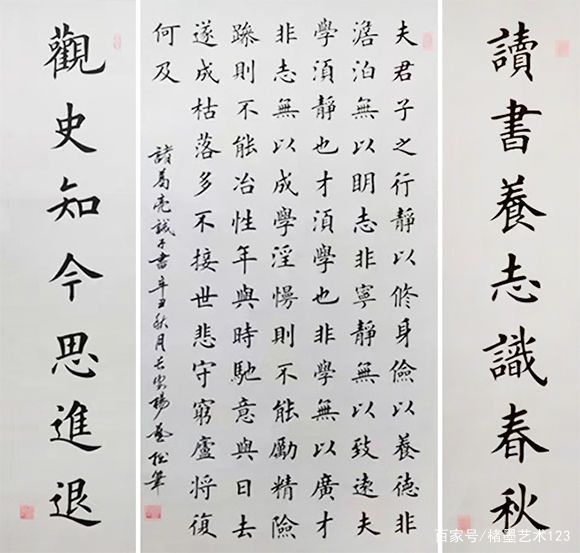 讀書養志識春秋
夫君子之行靜以修身儉以養德非
澹泊無以明志非寧靜無以致遠夫
學湏靜也才湏學也非學無以廣才
非志無以成學淫慢則不能勵精險
躁則不能冶性年與時馳意與日去
遂成枯落多不接世悲守窮廬將復
何及
諸葛亮誡子書辛丑秋月長安楊松筆
觀史知今思進退
百家号/楮墨艺术123